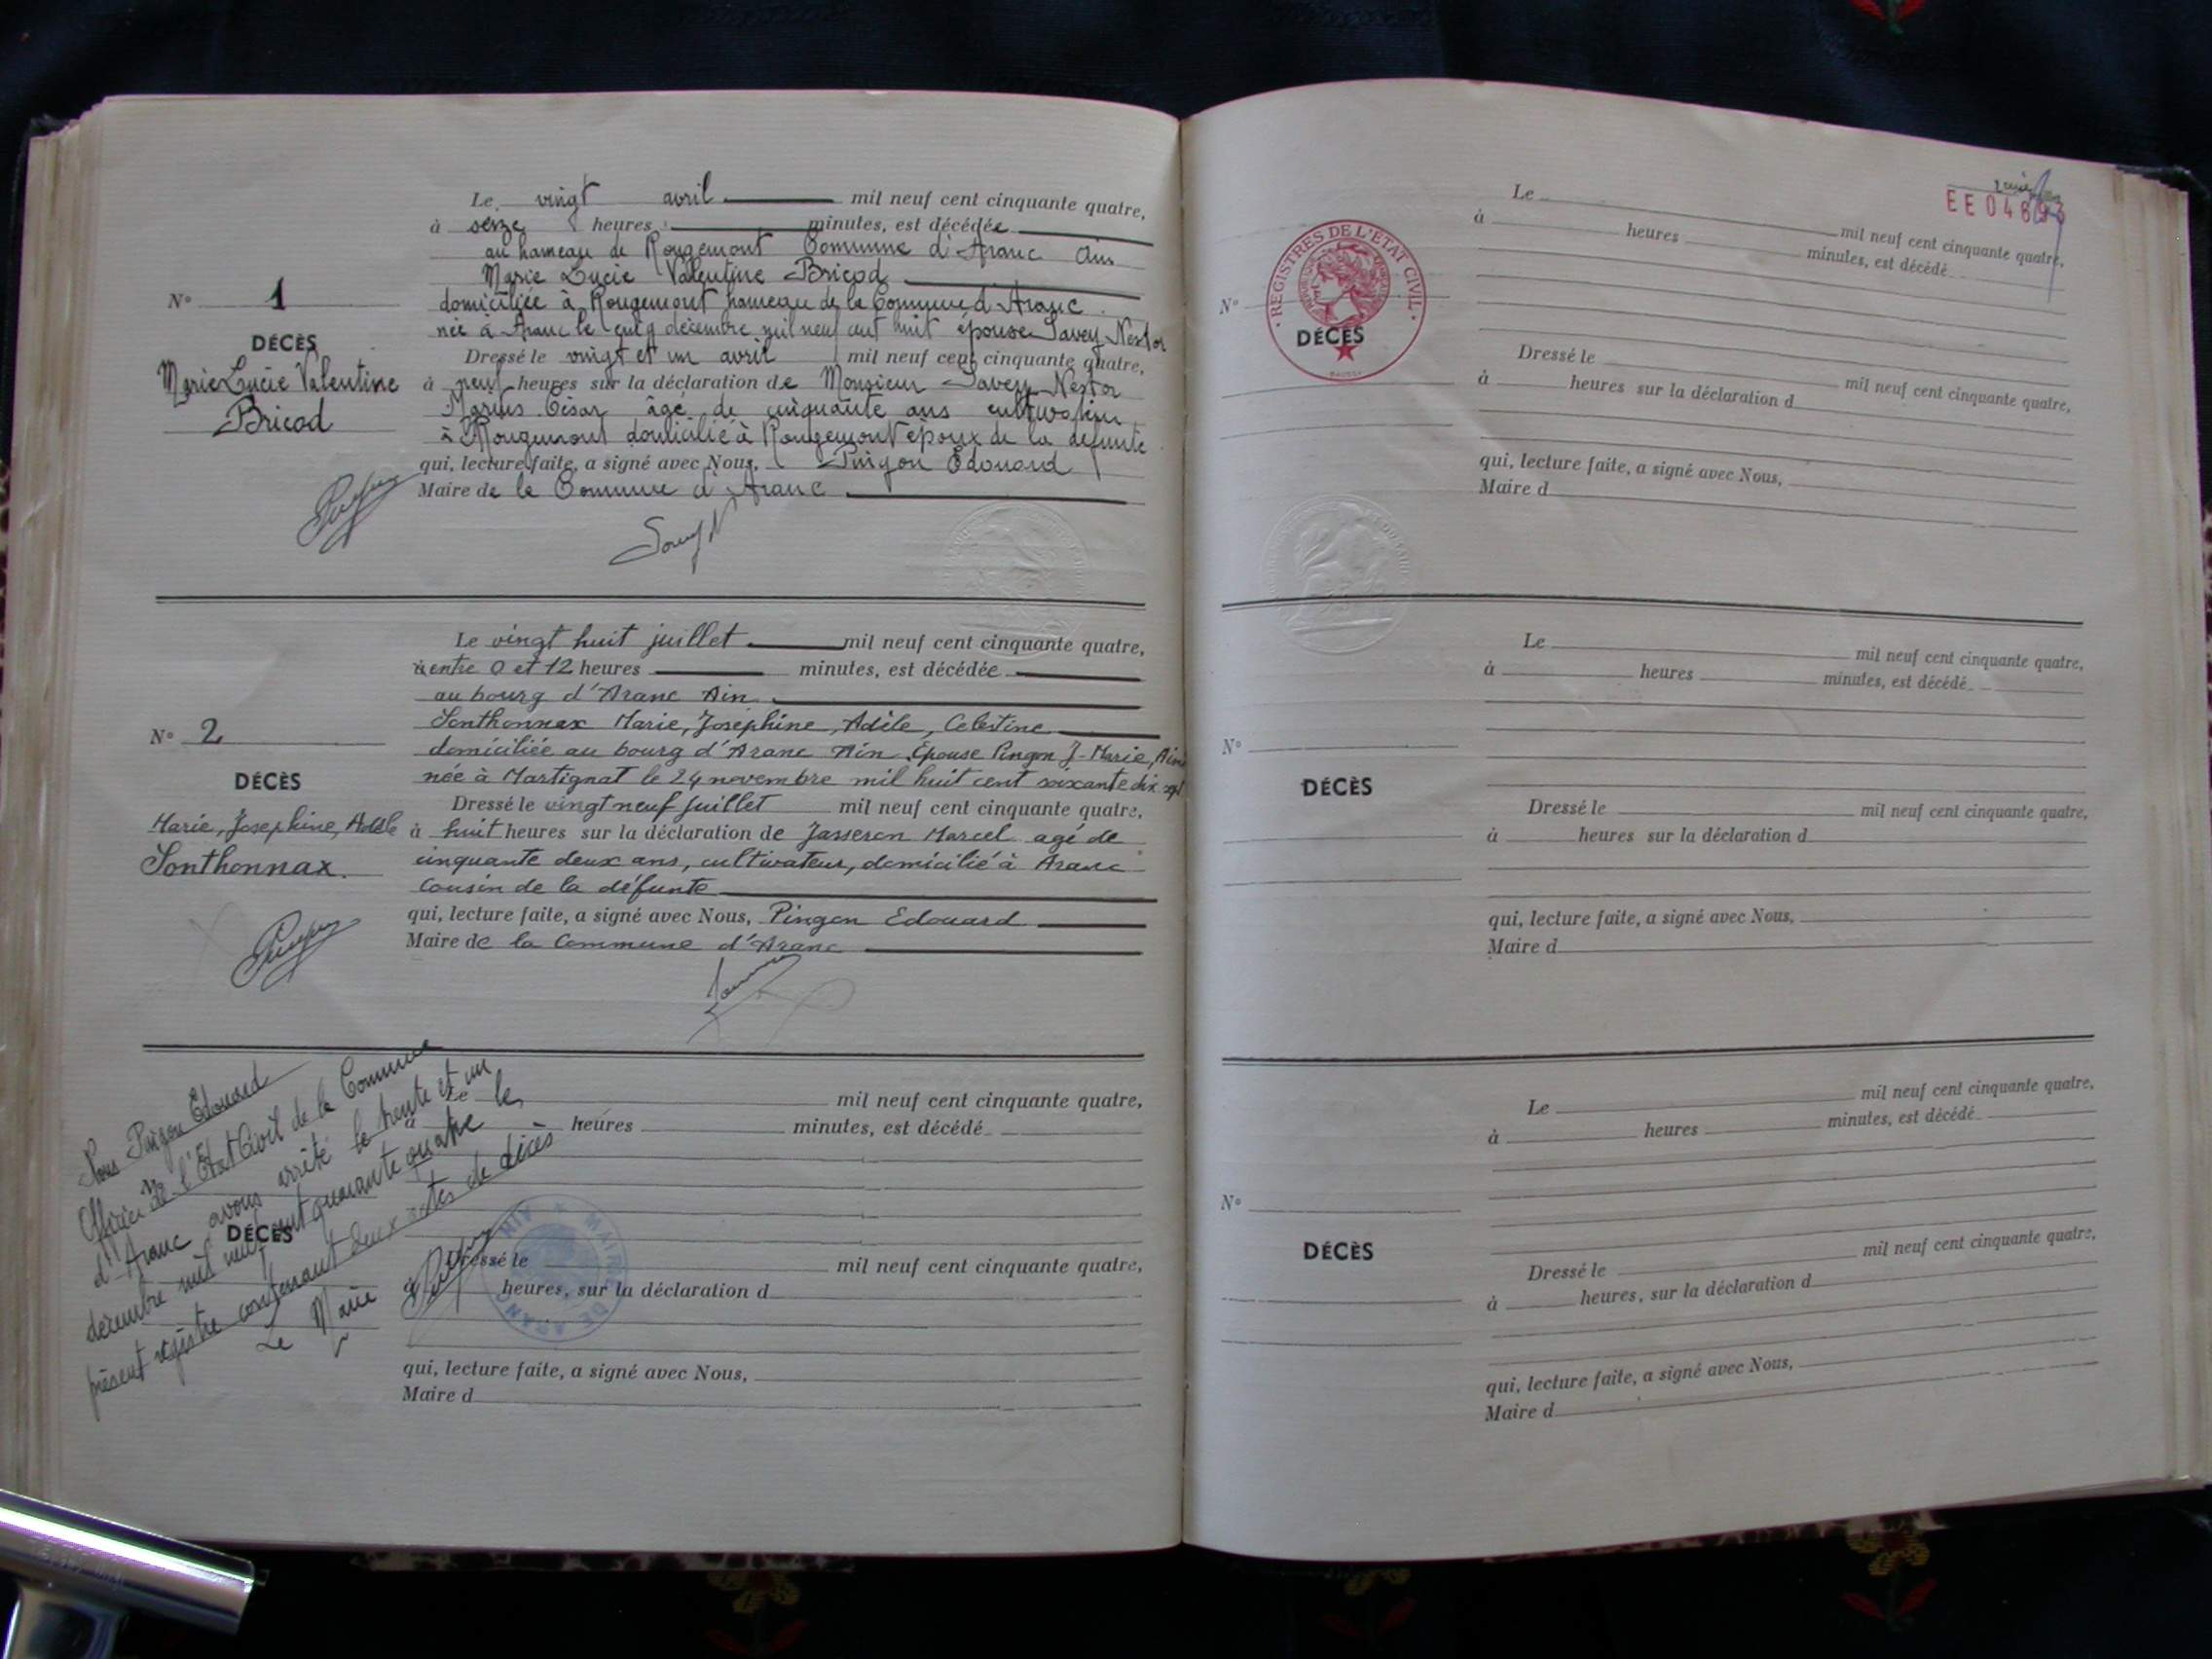 Le vingt avril mil neuf cent cinquante quatre,
à seize heures minutes, est décédée
au hameau de Rougemont Commune d'Aranc Ain
Marie Lucie Valentine Bricod
N° 1
domiciliée à Rougemont hameau de la Commune d'Aranc
née à Aranc le cinq décembre mil neuf cent huit épouse Savey Nestor
DÉCÈS
Dressé le vingt et un avril mil neuf cent cinquante quatre,
Marie Lucie Valentine
à neuf heures sur la déclaration de Monsieur Savey Nestor
Marius César âgé de cinquante ans cultivateur
Bricod
à Rougemont domicilié à Rougemont époux de la défunte
qui, lecture faite, a signé avec Nous, Pingon Edouard
Maire de la Commune d'Aranc
Le vingt huit juillet mil neuf cent cinquante quatre,
à entre 0 et 12 heures minutes, est décédée
au bourg d'Aranc Ain
Sonthonnax Marie, Joséphine, Adèle, Celestine
N° 2
domiciliée au bourg d'Aranc Ain Épouse Pingon J-Marie,
née à Martignat le 24 novembre mil huit cent soixante dix sept
DÉCÈS
Dressé le vingt neuf juillet mil neuf cent cinquante quatre,
Marie, Josephine, Adèle
à huit heures sur la déclaration de Jasseron Marcel agé de
Sonthonnax.
cinquante deux ans, cultivateur, domicilié à Aranc
Cousin de la défunte
qui, lecture faite, a signé avec Nous, Pingon Edouard
Maire de la Commune d'Aranc
Nous Pingon Edouard
Officier de l'Etat Civil de la Commune
d'Aranc avons arrêté le trente et un
décembre mil neuf cent quarante quatre le
présent registre contenant deux actes de décès
Le Maire
Le mil neuf cent cinquante quatre,
à heures minutes, est décédé
DÉCÈS
Dressé le mil neuf cent cinquante quatre,
à heures, sur la déclaration d
MAIRIE D'ARANC AIN
qui, lecture faite, a signé avec Nous,
Maire d
EE048
Le mil neuf cent cinquante quatre,
à heures minutes, est décédé
REGISTRES DE L'ÉTAT CIVIL
N°
DÉCÈS
Dressé le mil neuf cent cinquante quatre,
à heures sur la déclaration d
qui, lecture faite, a signé avec Nous,
Maire d
Le mil neuf cent cinquante quatre,
à heures minutes, est décédé
N°
DÉCÈS
Dressé le mil neuf cent cinquante quatre,
à heures sur la déclaration d
qui, lecture faite, a signé avec Nous,
Maire d
Le mil neuf cent cinquante quatre,
à heures minutes, est décédé
N°
DÉCÈS
Dressé le mil neuf cent cinquante quatre,
à heures, sur la déclaration d
qui, lecture faite, a signé avec Nous,
Maire d